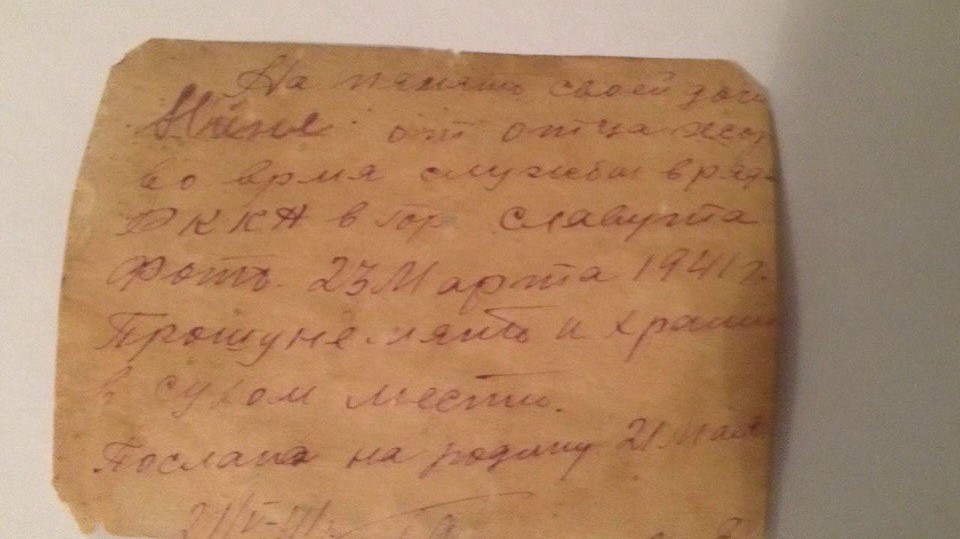 На память своей доч
Нине от отца
во врмя службы в ряд
РККА в гор Славута
Фот. 23 Марта 1941 г.
Прошу не мять и храни
в сухом месте.
Послана на родину 21 Мая
21/V-41г.